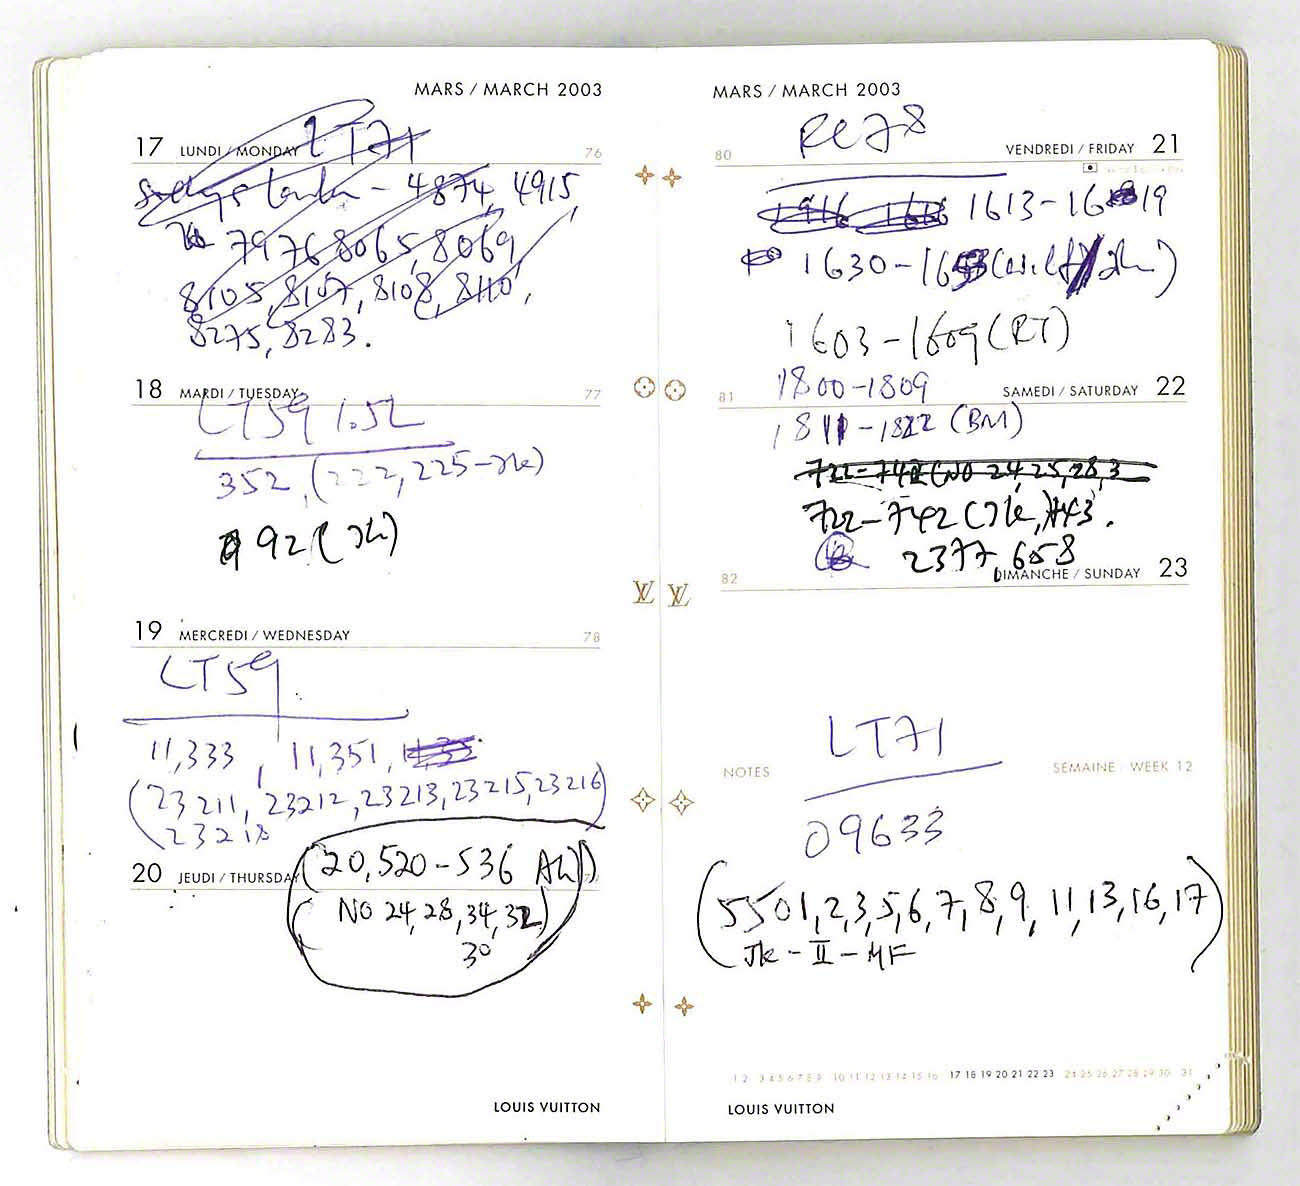 MARS / MARCH 2003
17 LUNDI / MONDAY 76
LT71
4874, 4915,
7976, 8065, 8069,
8105, 8107, 8108, 8110,
8275, 8283.
18 MARDI / TUESDAY 77
LT59 1.52
352, (222, 225-Jk)
92 (Jk)
19 MERCREDI / WEDNESDAY 78
LT59
11,333, 11,351,
(23211, 23212, 23213, 23215, 23216)
23218
20 JEUDI / THURSDAY
(20,520-536
NO 24, 28, 34, 32)
30
LOUIS VUITTON
MARS / MARCH 2003
80 VENDREDI / FRIDAY 21
1613-1619
1630-1653
1603-1609 (RT)
81 SAMEDI / SATURDAY 22
1800-1809
1811-1822 (BM)
722-742 (NO 24, 25, 28, 3
722-742 (Jk), 743.
2377, 658
82 DIMANCHE / SUNDAY 23
LT71
NOTES SEMAINE / WEEK 12
09633
(5501, 2, 3, 5, 6, 7, 8, 9, 11, 13, 16, 17)
Jk - II - MF
1 2 3 4 5 6 7 8 9 10 11 12 13 14 15 16 17 18 19 20 21 22 23 24 25 26 27 28 29 30 31
LOUIS VUITTON